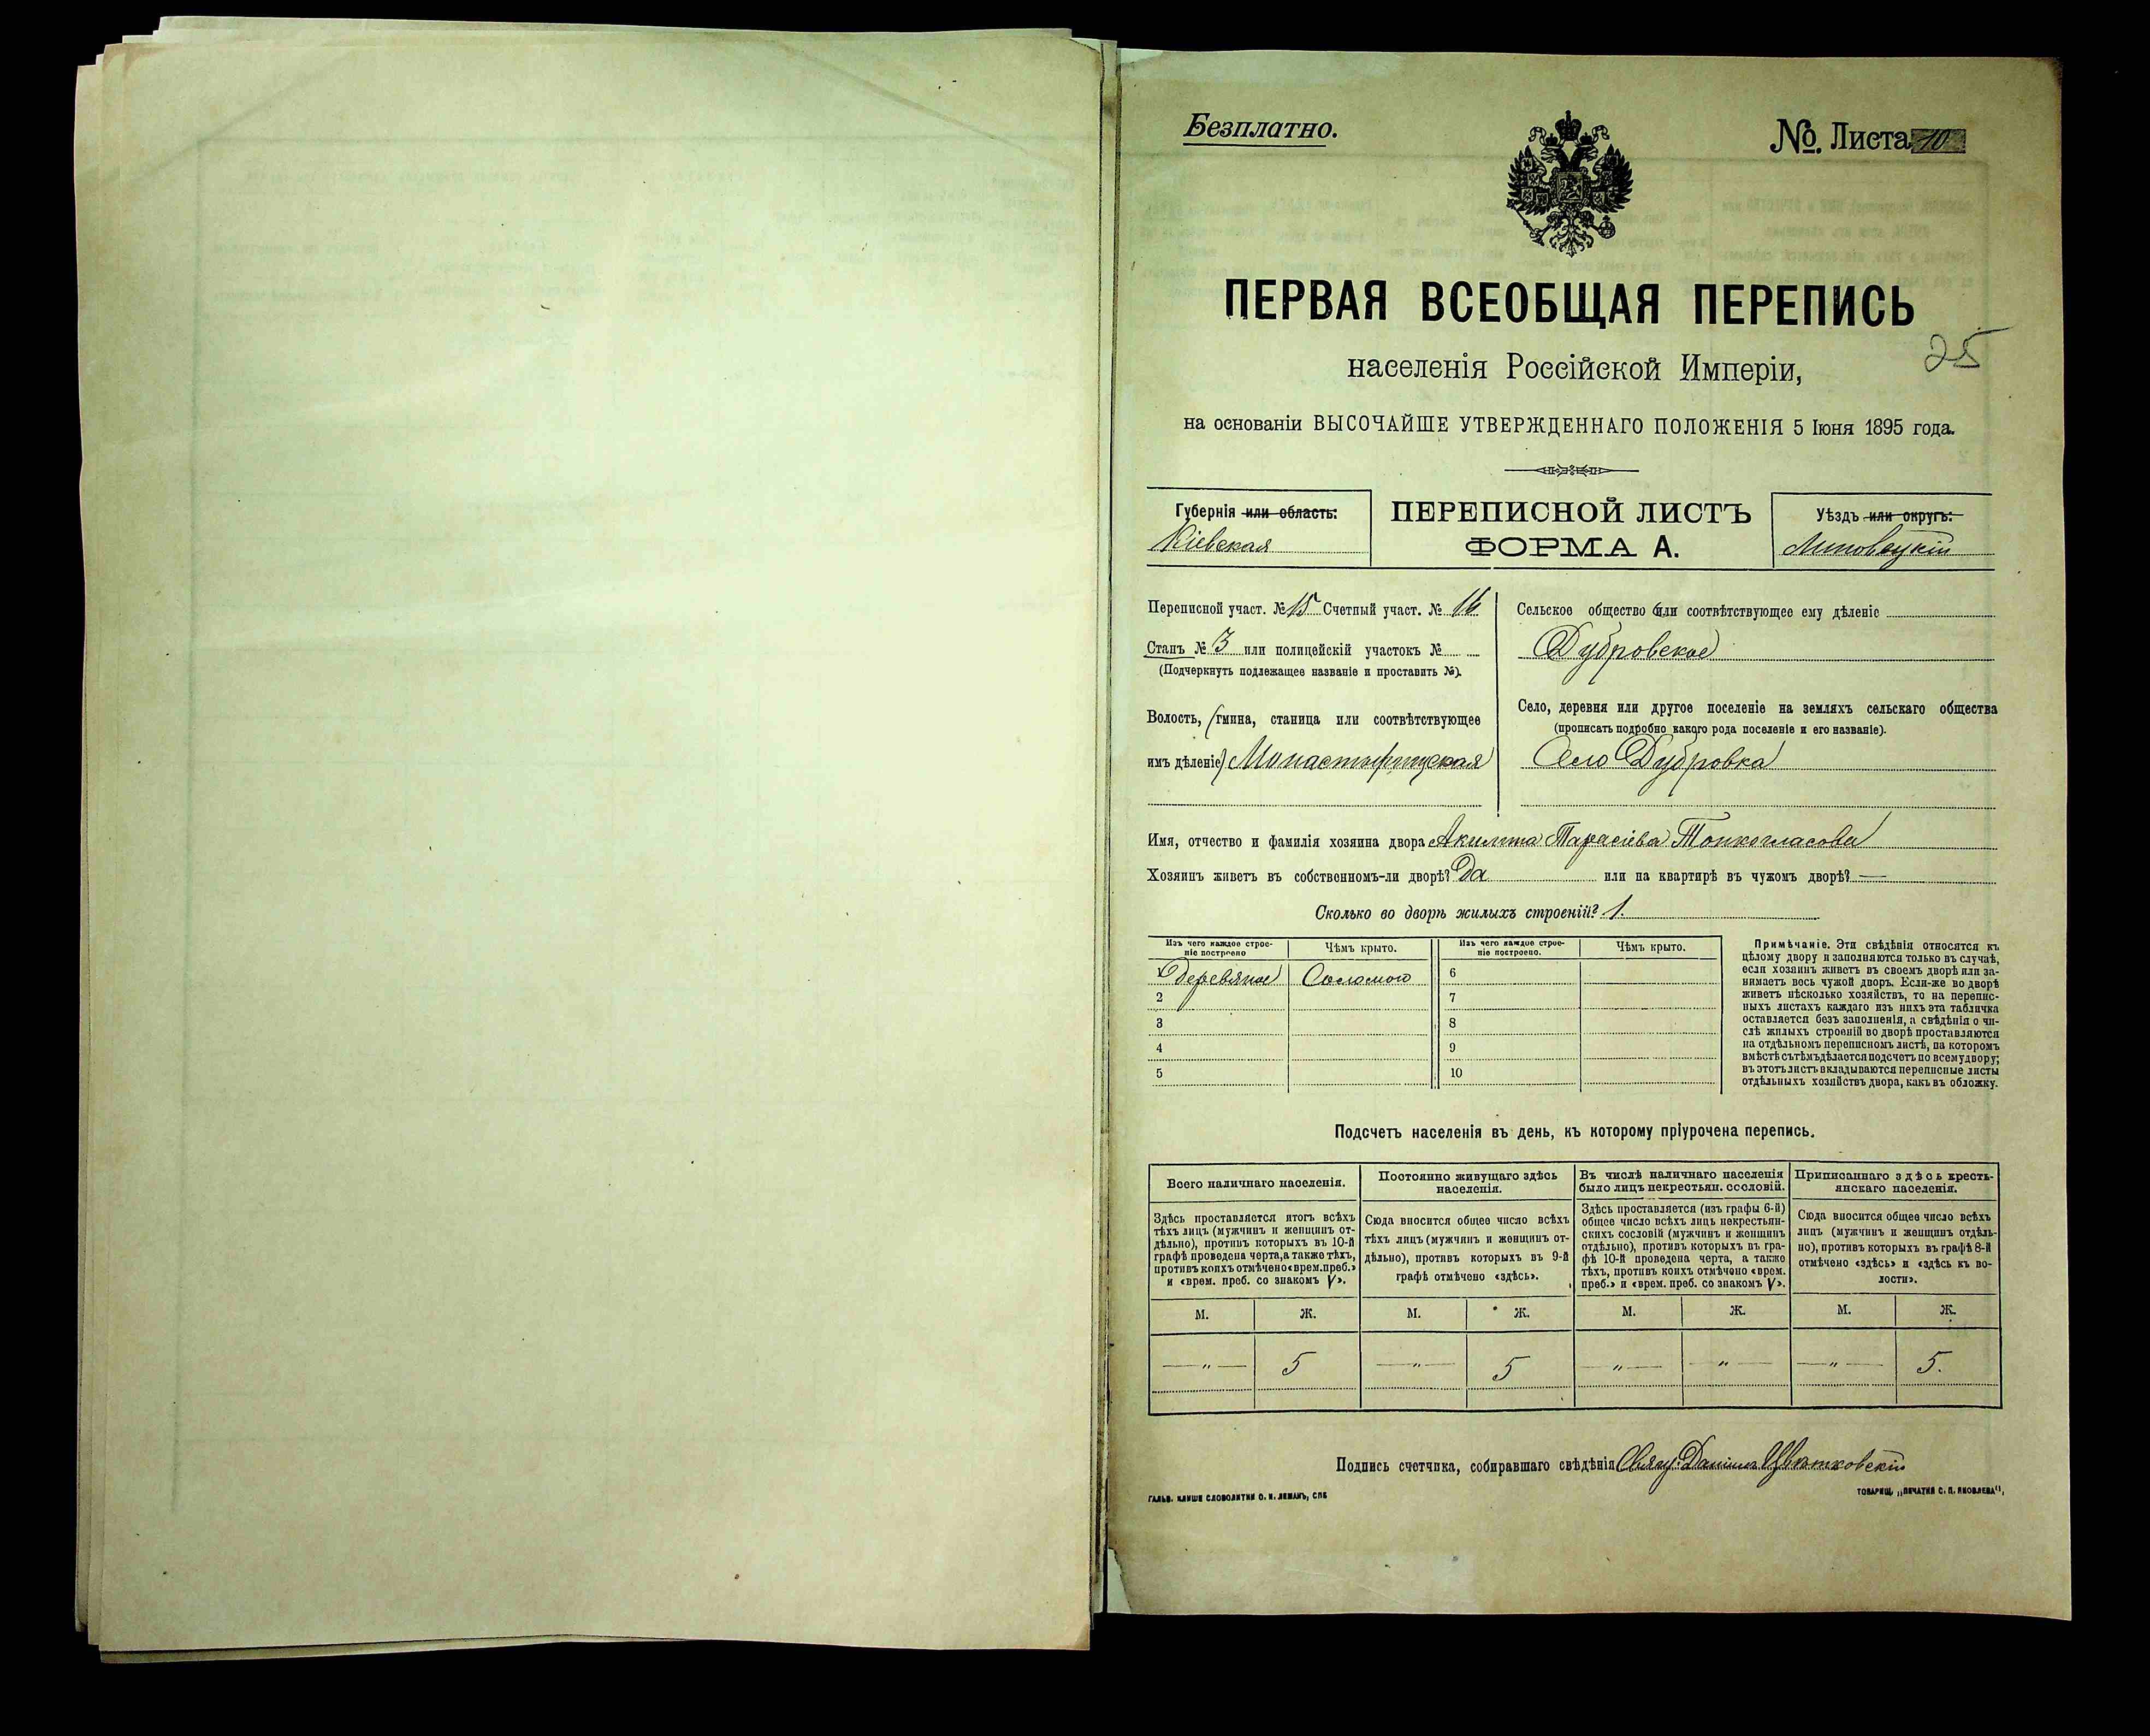 Безплатно.
№. Листа 10
ПЕРВАЯ ВСЕОБЩАЯ ПЕРЕПИСЬ
25
населенія Россійской Имперіи,
на основаніи ВЫСОЧАЙШЕ УТВЕРЖДЕННАГО ПОЛОЖЕНІЯ 5 Іюня 1895 года.
Губернія или область:
Кіевская
ПЕРЕПИСНОЙ ЛИСТЪ
ФОРМА А.
Уѣздъ или округъ:
Липовецкій
Переписной участ. № 15 Счетный участ. № 16
Станъ № 3 или полицейскій участокъ №
(Подчеркнуть подлежащее названіе и проставить №).
Волость, (гмина, станица или соотвѣтствующее
имъ дѣленіе) Монастырищская
Сельское общество или соотвѣтствующее ему дѣленіе
Дубровское
Село, деревня или другое поселеніе на земляхъ сельскаго общества
(прописать подробно какого рода поселеніе и его названіе).
Село Дубровка
Имя, отчество и фамилія хозяина двора Акилина Тарасіева Тонкогласова
Хозяинъ живетъ въ собственномъ-ли дворѣ? Да или на квартирѣ въ чужомъ дворѣ? —
Сколько во дворѣ жилыхъ строеній? 1.
Изъ чего каждое строе-
ніе построено
Чѣмъ крыто.
Изъ чего каждое строе-
ніе построено.
Чѣмъ крыто.
1 Деревяное Соломою 6
2 7
3 8
4 9
5 10
Примѣчаніе. Эти свѣдѣнія относятся къ
цѣлому двору и заполняются только въ случаѣ,
если хозяинъ живетъ въ своемъ дворѣ или за-
нимаетъ весь чужой дворъ. Если-же во дворѣ
живетъ нѣсколько хозяйствъ, то на перепис-
ныхъ листахъ каждаго изъ нихъ эта табличка
оставляется безъ заполненія, а свѣдѣнія о чи-
слѣ жилыхъ строеній во дворѣ проставляются
на отдѣльномъ переписномъ листѣ, на которомъ
вмѣстѣ съ тѣмъ дѣлается подсчетъ по всему двору;
въ этотъ листъ вкладываются переписные листы
отдѣльныхъ хозяйствъ двора, какъ въ обложку.
Подсчетъ населенія въ день, къ которому пріурочена перепись.
Всего наличнаго населенія.
Здѣсь проставляется итогъ всѣхъ
тѣхъ лицъ (мужчинъ и женщинъ от-
дѣльно), противъ которыхъ въ 10-й
графѣ проведена черта, а также тѣхъ,
противъ коихъ отмѣчено «врем. преб.»
и «врем. преб. со знакомъ V».
Постоянно живущаго здѣсь
населенія.
Сюда вносится общее число всѣхъ
тѣхъ лицъ (мужчинъ и женщинъ от-
дѣльно), противъ которыхъ въ 9-й
графѣ отмѣчено «здѣсь».
Въ числѣ наличнаго населенія
было лицъ некрестьян. сословій.
Здѣсь проставляется (изъ графы 6-й)
общее число всѣхъ лицъ некрестьян-
скихъ сословій (мужчинъ и женщинъ
отдѣльно), противъ которыхъ въ гра-
фѣ 10-й проведена черта, а также
тѣхъ, противъ коихъ отмѣчено «врем.
преб.» и «врем. преб. со знакомъ V».
Приписаннаго здѣсь кресть-
янскаго населенія.
Сюда вносится общее число всѣхъ
лицъ (мужчинъ и женщинъ отдѣль-
но), противъ которыхъ въ графѣ 8-й
отмѣчено «здѣсь» и «здѣсь къ во-
лости».
М. Ж. М. Ж. М. Ж. М. Ж.
—"— 5 —"— 5 —"— —"— —"— 5.
Подпись счетчика, собиравшаго свѣдѣнія Даніилъ Цвѣтковскій
ГАЛЬВ. КЛИШЕ СЛОВОЛИТНИ О. И. ЛЕМАНЪ, СПБ
ТОВАРИЩ. „ПЕЧАТНЯ С. П. ЯКОВЛЕВА",